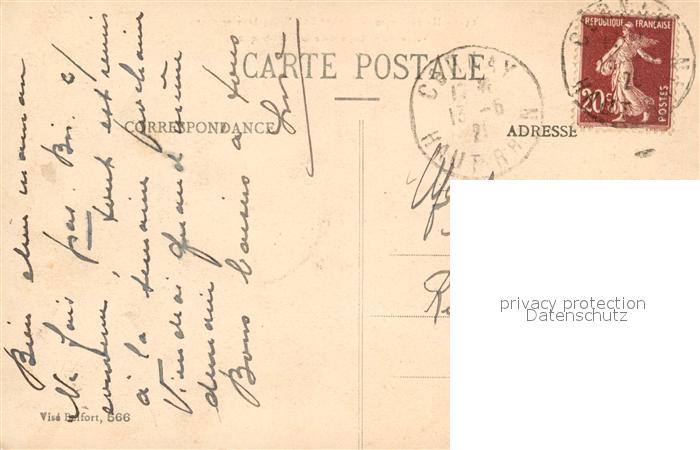 CARTE POSTALE
CORRESPONDANCE
ADRESSE
RÉPUBLIQUE FRANÇAISE
20c
POSTES
CERNAY
13 -6
21
HAUT-RHIN
Bien chère maman
Ne fais pas
tout est remis
à la semaine prochaine
Viendrai quand même
demain
Bons baisers à tous
Visé Belfort, 566
privacy protection
Datenschutz